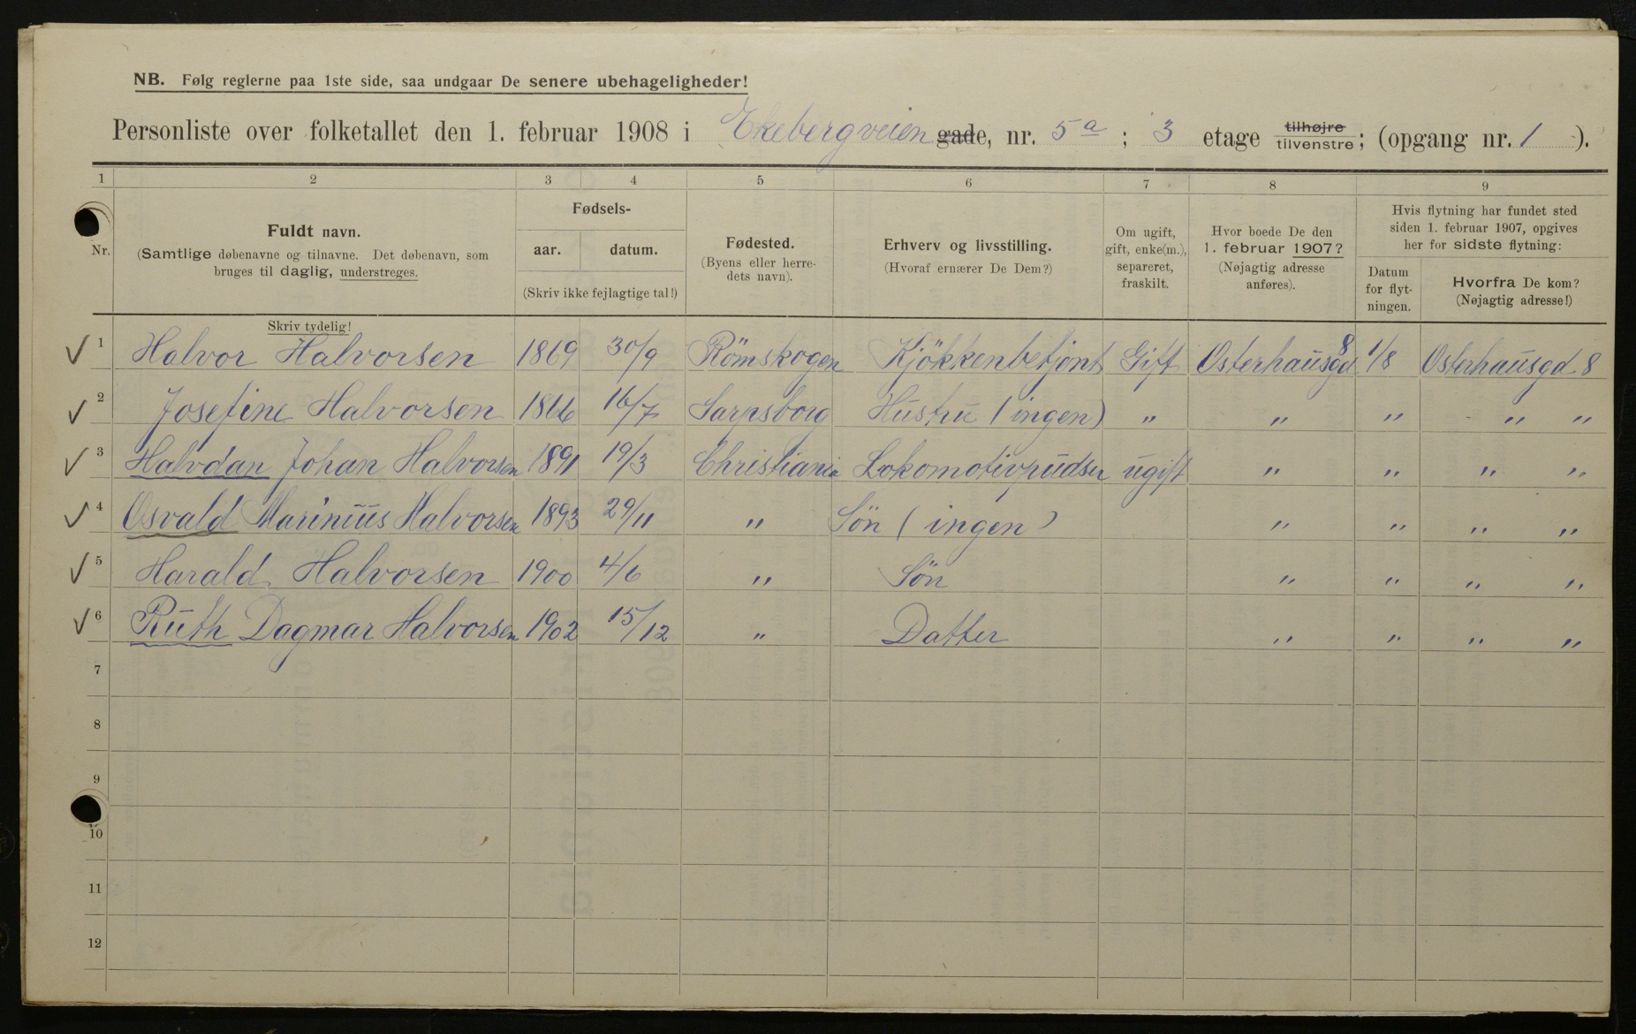 NB. Følg reglerne paa 1ste side, saa undgaar De senere ubehageligheder!
Personliste over folketallet den 1. februar 1908 i Ekebergveien gade, nr. 5a ; 3 etage tilhøjre tilvenstre; (opgang nr. 1 ).
1 2 3 4 5 6 7 8 9
Nr.
Fuldt navn.
(Samtlige døbenavne og tilnavne. Det døbenavn, som
bruges til daglig, understreges.
Skriv tydelig!
Fødsels-
aar. datum.
(Skriv ikke fejlagtige tal!)
Fødested.
(Byens eller herre-
dets navn).
Erhverv og livsstilling.
(Hvoraf ernærer De Dem?)
Om ugift,
gift, enke(m.),
separeret,
fraskilt.
Hvor boede De den
1. februar 1907?
(Nøjagtig adresse
anføres).
Hvis flytning har fundet sted
siden 1. februar 1907, opgives
her for sidste flytning:
Datum
for flyt-
ningen.
Hvorfra De kom?
(Nøjagtig adresse!)
1 Halvor Halvorsen 1869 30/9 Römskogen Kjökkenbetjent Gift Osterhausgd 8 1/8 Osterhausgd 8
2 Josefine Halvorsen 1866 16/7 Sarpsborg Hustru (ingen) " " " " "
3 Halvdan Johan Halvorsen 1891 19/3 Christiania Lokomotivpudser ugift " " " "
4 Osvald Marinius Halvorsen 1893 29/11 " Sön (ingen) " " " "
5 Harald Halvorsen 1900 4/6 " Sön " " " "
6 Ruth Dagmar Halvorsen 1902 15/12 " Datter " " " "
7
8
9
10
11
12